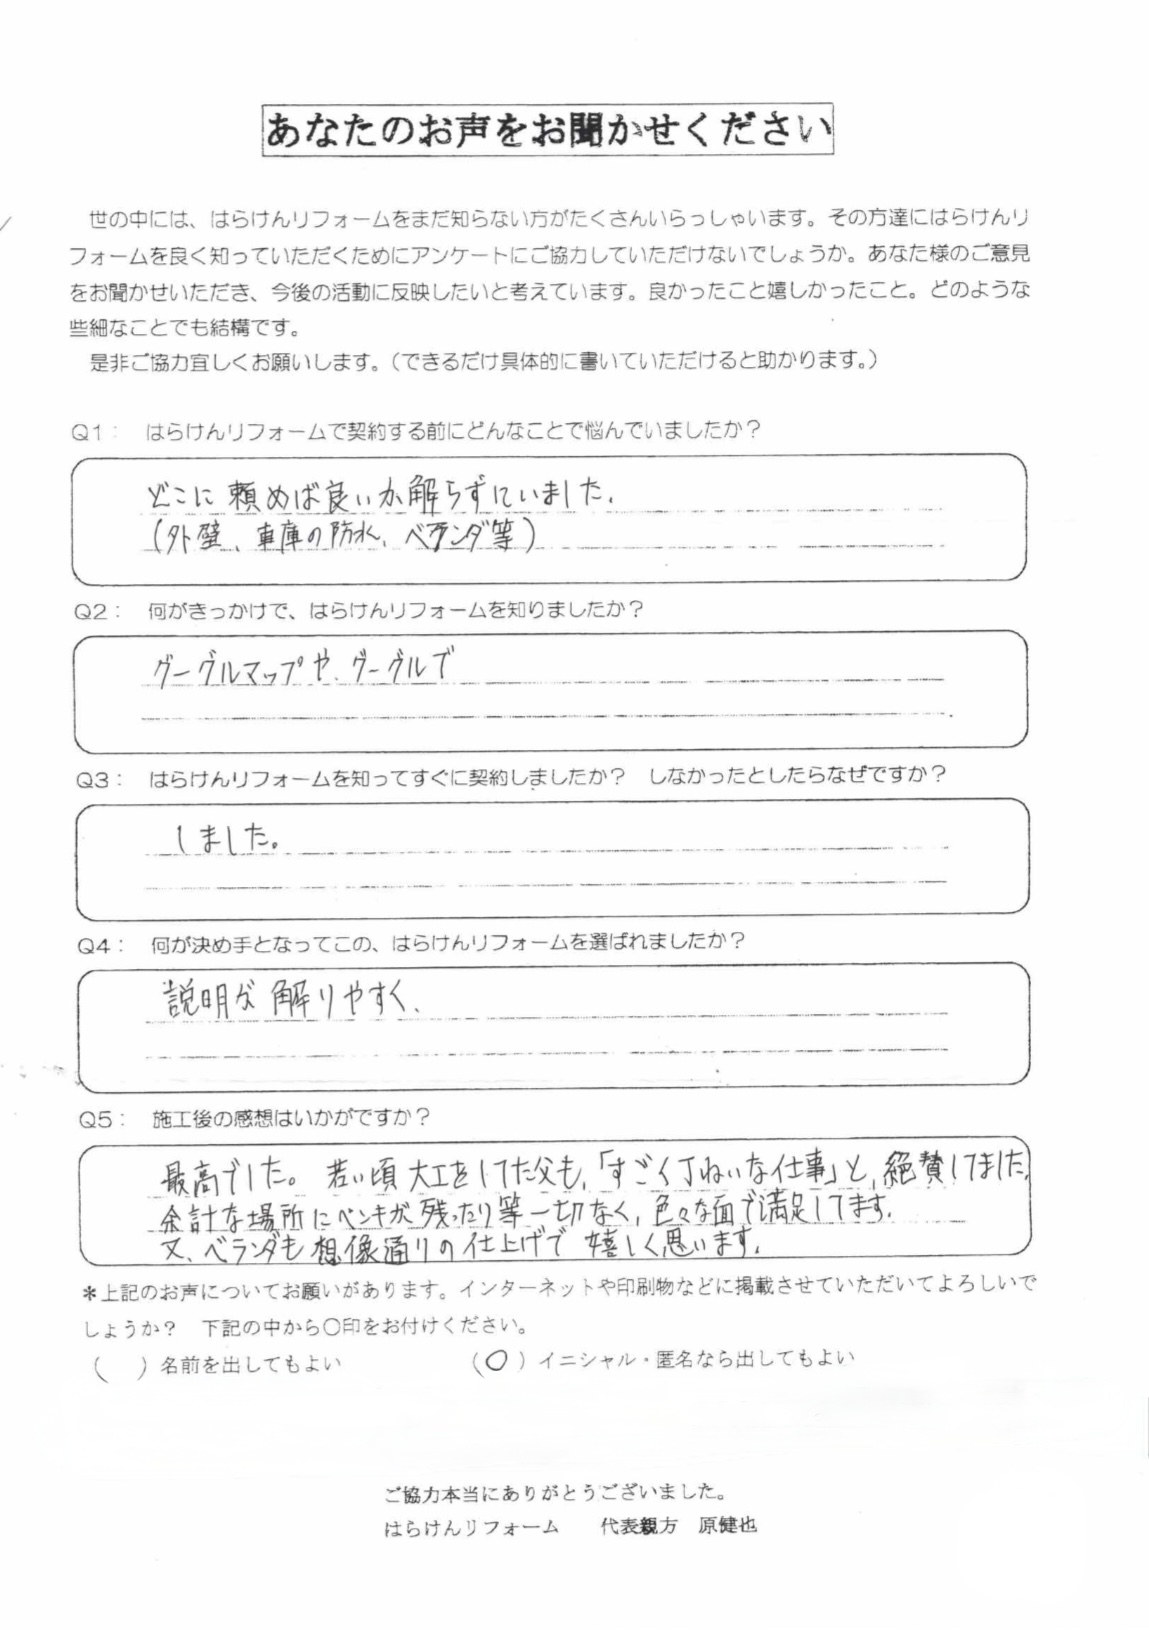 あなたのお声をお聞かせください
世の中には、はらけんリフォームをまだ知らない方がたくさんいらっしゃいます。その方達にはらけんリ
フォームを良く知っていただくためにアンケートにご協力していただけないでしょうか。あなた様のご意見
をお聞かせいただき、今後の活動に反映したいと考えています。良かったこと嬉しかったこと。どのような
些細なことでも結構です。
是非ご協力宜しくお願いします。（できるだけ具体的に書いていただけると助かります。）
Q1： はらけんリフォームで契約する前にどんなことで悩んでいましたか？
どこに頼めば良いか解らずにいました。
(外壁、車庫の防水、ベランダ等)
Q2： 何がきっかけで、はらけんリフォームを知りましたか？
グーグルマップや、グーグルで
Q3： はらけんリフォームを知ってすぐに契約しましたか？ しなかったとしたらなぜですか？
しました。
Q4： 何が決め手となってこの、はらけんリフォームを選ばれましたか？
説明が解りやすく、
Q5： 施工後の感想はいかがですか？
最高でした。若い頃大工をしてた父も、「すごく丁ねいな仕事」と、絶賛してました。
余計な場所にペンキが残ったり等一切なく、色々な面で満足してます。
又、ベランダも想像通りの仕上げで嬉しく思います。
＊上記のお声についてお願いがあります。インターネットや印刷物などに掲載させていただいてよろしいで
しょうか？ 下記の中から○印をお付けください。
（ ）名前を出してもよい （○）イニシャル・匿名なら出してもよい
ご協力本当にありがとうございました。
はらけんリフォーム 代表親方 原健也